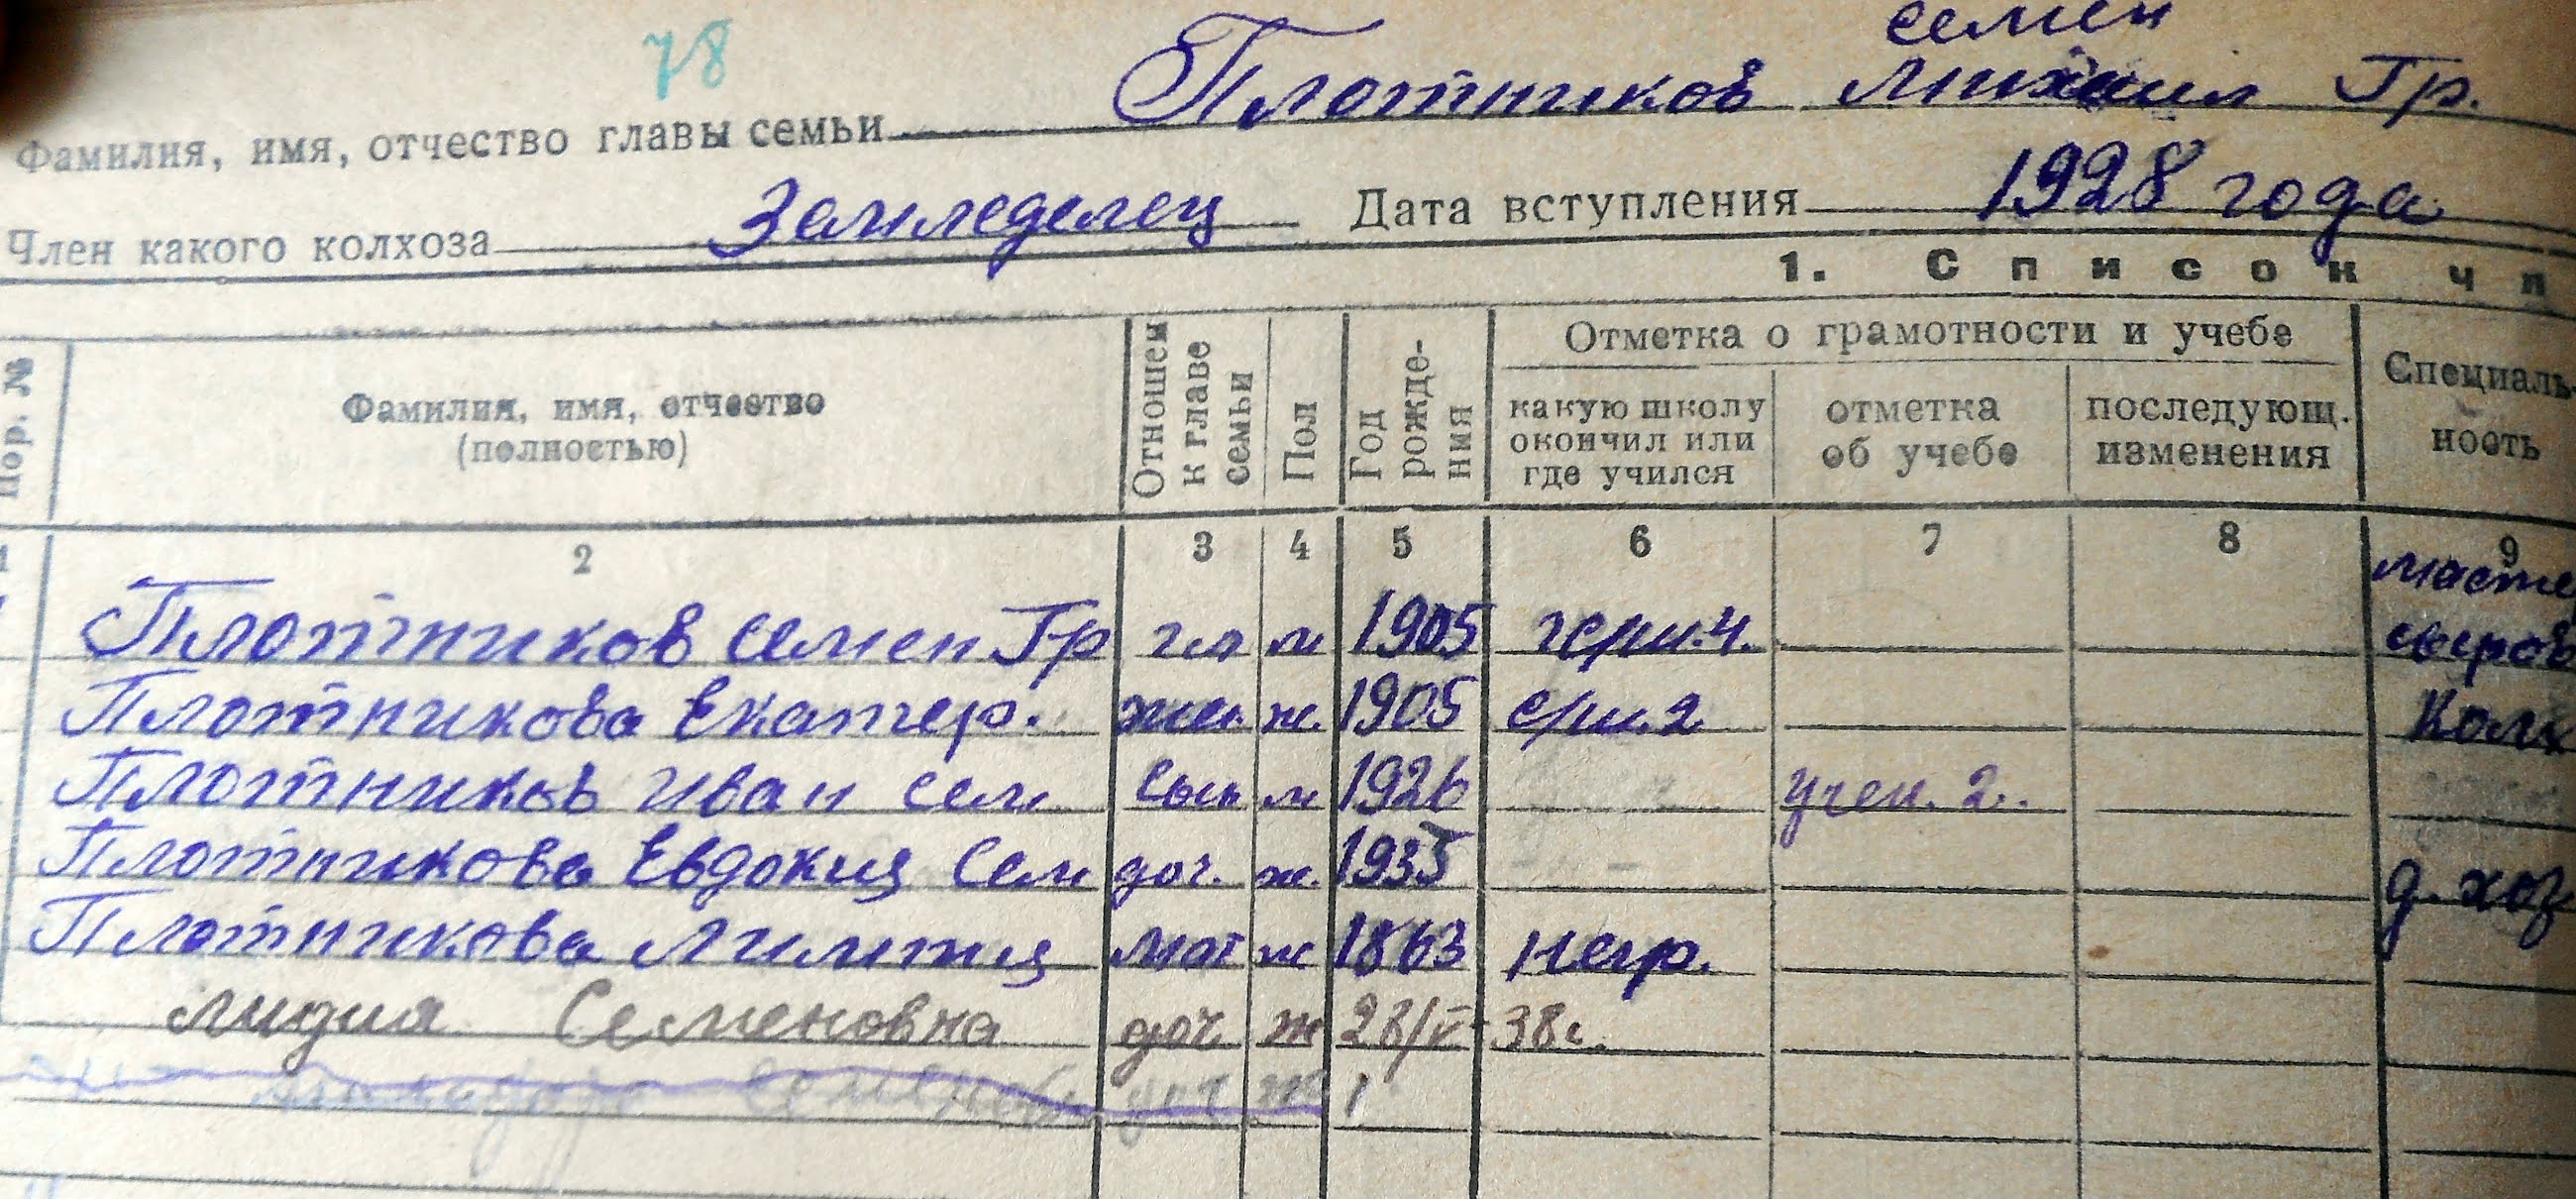 78
семен
Фамилия, имя, отчество главы семьи Плотников Михаил Гр.
Член какого колхоза Земледелец Дата вступления 1928 года
1. Список чл
Пор. № Фамилия, имя, отчество (полностью) Отношен к главе семьи Пол Год рождения Отметка о грамотности и учебе Специаль-
какую школу окончил или где учился отметка об учебе последующ. изменения ность
1 2 3 4 5 6 7 8 9
Плотников Семен Гр гл м 1905
Плотникова Екатер. жен ж. 1905 2 Колх
Плотников Иван Сем сын м 1926 учен. 2.
Плотникова Евдокия Сем доч. ж. 1935 д. хоз
Плотникова мат ж 1863 негр.
Лидия Семеновна доч ж 28/V-38г.